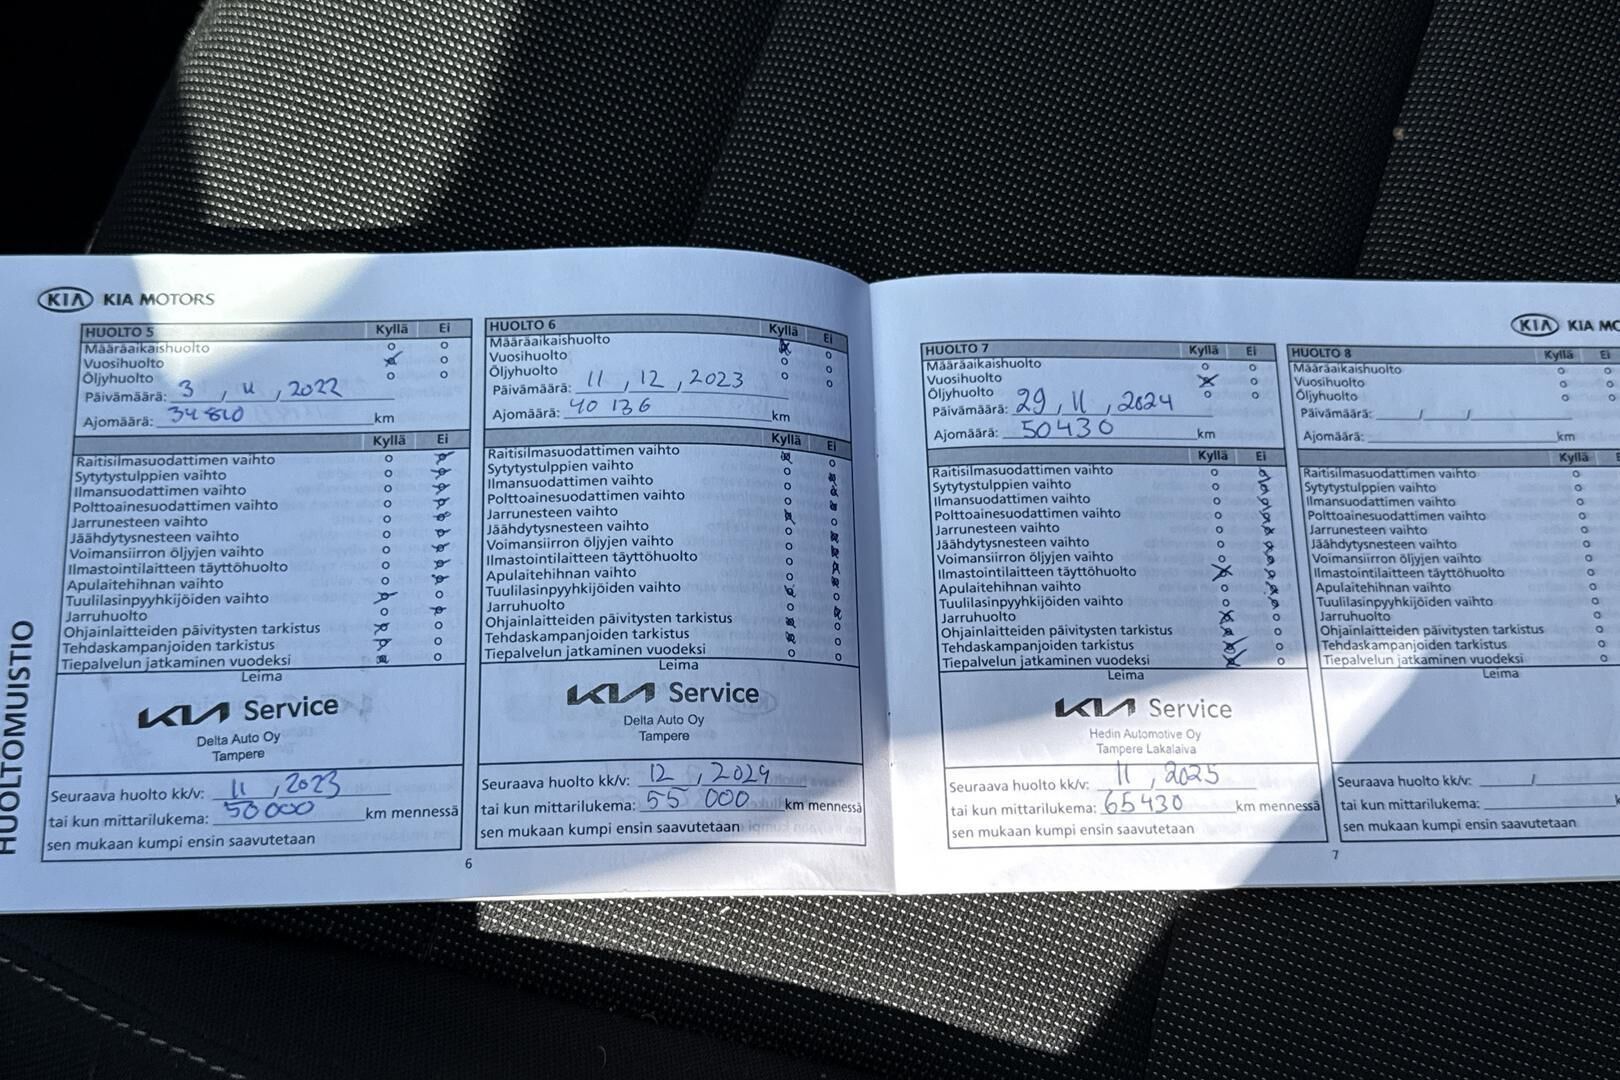 HUOLTOMUISTIO
KIA KIA MOTORS
HUOLTO 5 Kyllä Ei
Määräaikaishuolto
Vuosihuolto
Öljyhuolto
Päivämäärä: 3 , 11 , 2022
Ajomäärä: 34 810 km
Kyllä Ei
Raitisilmasuodattimen vaihto
Sytytystulppien vaihto
Ilmansuodattimen vaihto
Polttoainesuodattimen vaihto
Jarrunesteen vaihto
Jäähdytysnesteen vaihto
Voimansiirron öljyjen vaihto
Ilmastointilaitteen täyttöhuolto
Apulaitehihnan vaihto
Tuulilasinpyyhkijöiden vaihto
Jarruhuolto
Ohjainlaitteiden päivitysten tarkistus
Tehdaskampanjoiden tarkistus
Tiepalvelun jatkaminen vuodeksi
Leima
KIA Service
Delta Auto Oy
Tampere
Seuraava huolto kk/v: 11 , 2023
tai kun mittarilukema: 50000 km mennessä
sen mukaan kumpi ensin saavutetaan
HUOLTO 6 Kyllä Ei
Määräaikaishuolto
Vuosihuolto
Öljyhuolto
Päivämäärä: 11 , 12 , 2023
Ajomäärä: 40 136 km
Kyllä Ei
Raitisilmasuodattimen vaihto
Sytytystulppien vaihto
Ilmansuodattimen vaihto
Polttoainesuodattimen vaihto
Jarrunesteen vaihto
Jäähdytysnesteen vaihto
Voimansiirron öljyjen vaihto
Ilmastointilaitteen täyttöhuolto
Apulaitehihnan vaihto
Tuulilasinpyyhkijöiden vaihto
Jarruhuolto
Ohjainlaitteiden päivitysten tarkistus
Tehdaskampanjoiden tarkistus
Tiepalvelun jatkaminen vuodeksi
Leima
KIA Service
Delta Auto Oy
Tampere
Seuraava huolto kk/v: 12 , 2024
tai kun mittarilukema: 55 000 km mennessä
sen mukaan kumpi ensin saavutetaan
6
KIA KIA MO
HUOLTO 7 Kyllä Ei
Määräaikaishuolto
Vuosihuolto
Öljyhuolto
Päivämäärä: 29 , 11 , 2024
Ajomäärä: 50430 km
Kyllä Ei
Raitisilmasuodattimen vaihto
Sytytystulppien vaihto
Ilmansuodattimen vaihto
Polttoainesuodattimen vaihto
Jarrunesteen vaihto
Jäähdytysnesteen vaihto
Voimansiirron öljyjen vaihto
Ilmastointilaitteen täyttöhuolto
Apulaitehihnan vaihto
Tuulilasinpyyhkijöiden vaihto
Jarruhuolto
Ohjainlaitteiden päivitysten tarkistus
Tehdaskampanjoiden tarkistus
Tiepalvelun jatkaminen vuodeksi
Leima
KIA Service
Hedin Automotive Oy
Tampere Lakalaiva
Seuraava huolto kk/v: 11 , 2025
tai kun mittarilukema: 65430 km mennessä
sen mukaan kumpi ensin saavutetaan
HUOLTO 8 Kyllä Ei
Määräaikaishuolto
Vuosihuolto
Öljyhuolto
Päivämäärä: / /
Ajomäärä: km
Kyllä
Raitisilmasuodattimen vaihto
Sytytystulppien vaihto
Ilmansuodattimen vaihto
Polttoainesuodattimen vaihto
Jarrunesteen vaihto
Jäähdytysnesteen vaihto
Voimansiirron öljyjen vaihto
Ilmastointilaitteen täyttöhuolto
Apulaitehihnan vaihto
Tuulilasinpyyhkijöiden vaihto
Jarruhuolto
Ohjainlaitteiden päivitysten tarkistus
Tehdaskampanjoiden tarkistus
Tiepalvelun jatkaminen vuodeksi
Leima
Seuraava huolto kk/v: /
tai kun mittarilukema:
sen mukaan kumpi ensin saavutetaan
7